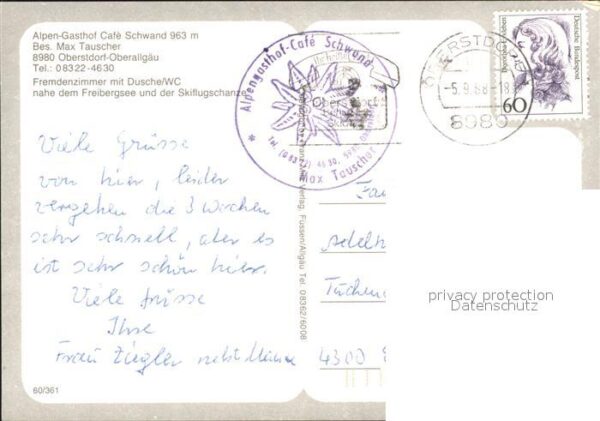 Alpen-Gasthof Café Schwand 963 m
Bes. Max Tauscher
8980 Oberstdorf-Oberallgäu
Tel.: 08322-4630
Fremdenzimmer mit Dusche/WC
nahe dem Freibergsee und der Skiflugschanze
Viele Grüsse
von hier, leider
vergehen die 3 Wochen
sehr schnell, aber es
ist sehr schön hier.
Viele Grüsse
Ihre
Frau Ziegler nebst
60/361
Alpengasthof-Café Schwand
Max Tauscher
Verlag, Füssen/Allgäu Tel. 08362/6008
OBERSTDORF
-5.9.88-18
8980
Deutsche Bundespost
60
Adelh
4300
privacy protection
Datenschutz